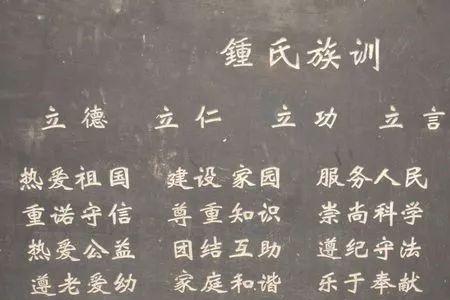 鍾氏族训
立德 立仁 立功 立言
热爱祖国 建设家园 服务人民
重诺守信 尊重知识 崇尚科学
热爱公益 团结互助 遵纪守法
遵老爱幼 家庭和谐 乐于奉献